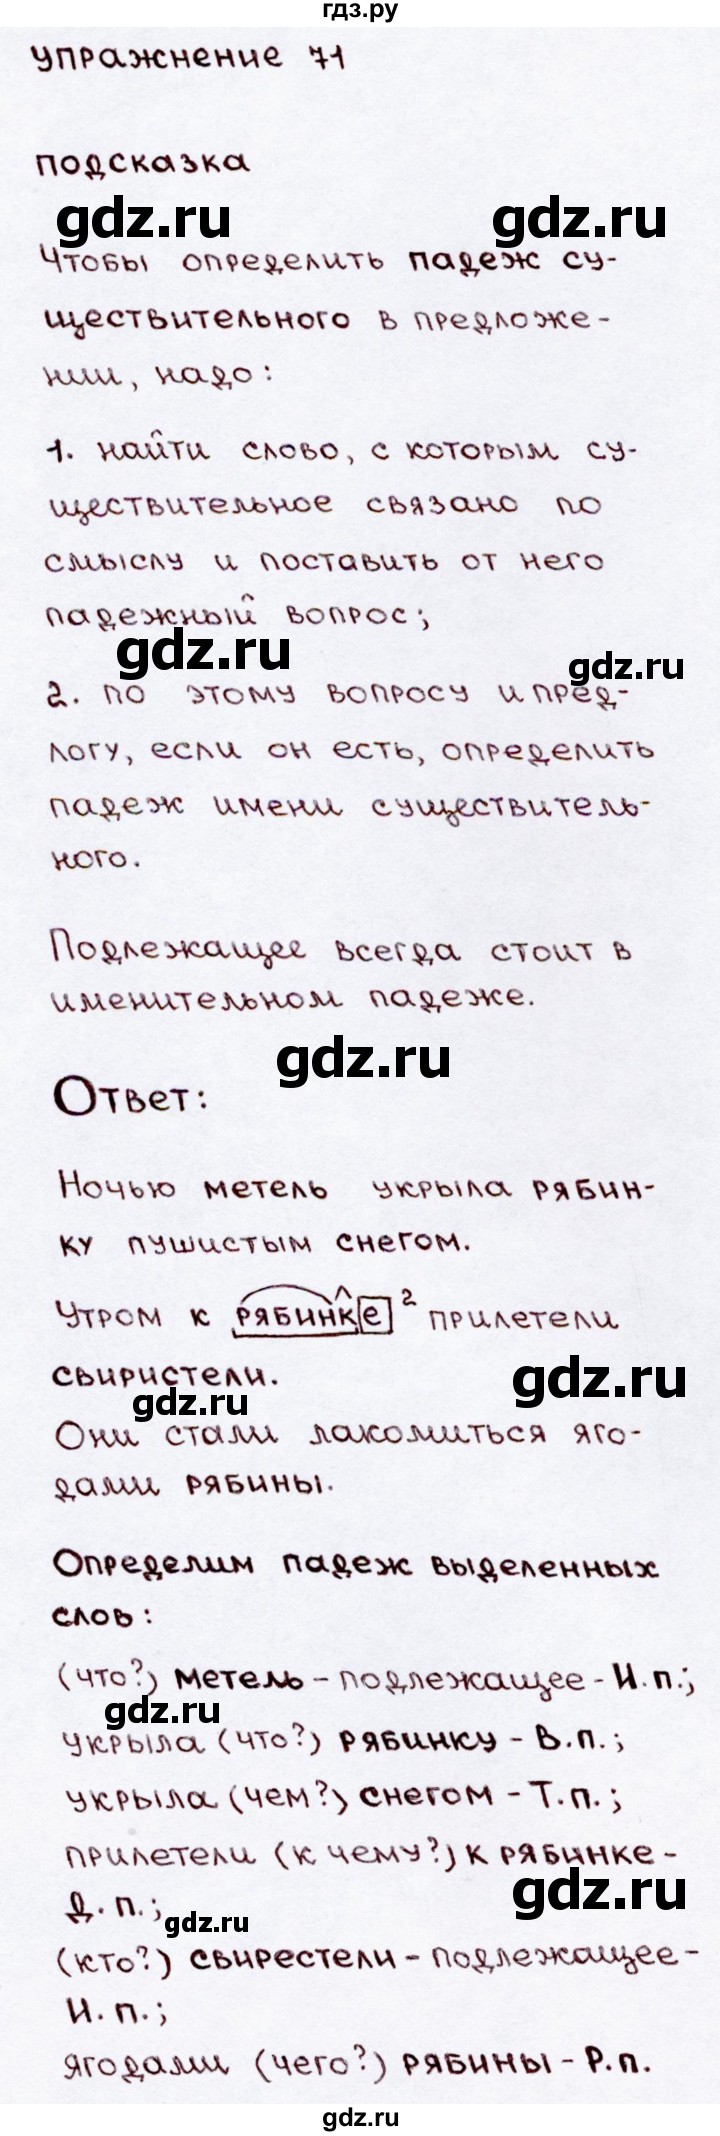 гдз.ру
упражнение 71
подсказка
gdz.ru gdz.ru
Чтобы определить падеж су-
ществительного в предложе-
нии, надо:
1. найти слово, с которым су-
ществительное связано по
смыслу и поставить от него
падежный вопрос;
gdz.ru gdz.ru
2. по этому вопросу и пред-
логу, если он есть, определить
падеж имени существитель-
ного.
Подлежащее всегда стоит в
именительном падеже.
gdz.ru
Ответ:
Ночью метель укрыла рябин-
ку пушистым снегом.
Утром к рябинке 2 прилетели
свиристели.
gdz.ru gdz.ru
Они стали лакомиться яго-
дами рябины.
Определим падеж выделенных
слов:
(что?) метель - подлежащее - И.п.;
gdz.ru
укрыла (что?) рябинку - В.п.;
укрыла (чем?) снегом - Т.п.;
прилетели (к чему?) к рябинке -
gdz.ru
Д.п.;
gdz.ru
(кто?) свирестели - подлежащее -
И.п.;
ягодами (чего?) рябины - Р.п.
gdz.ru